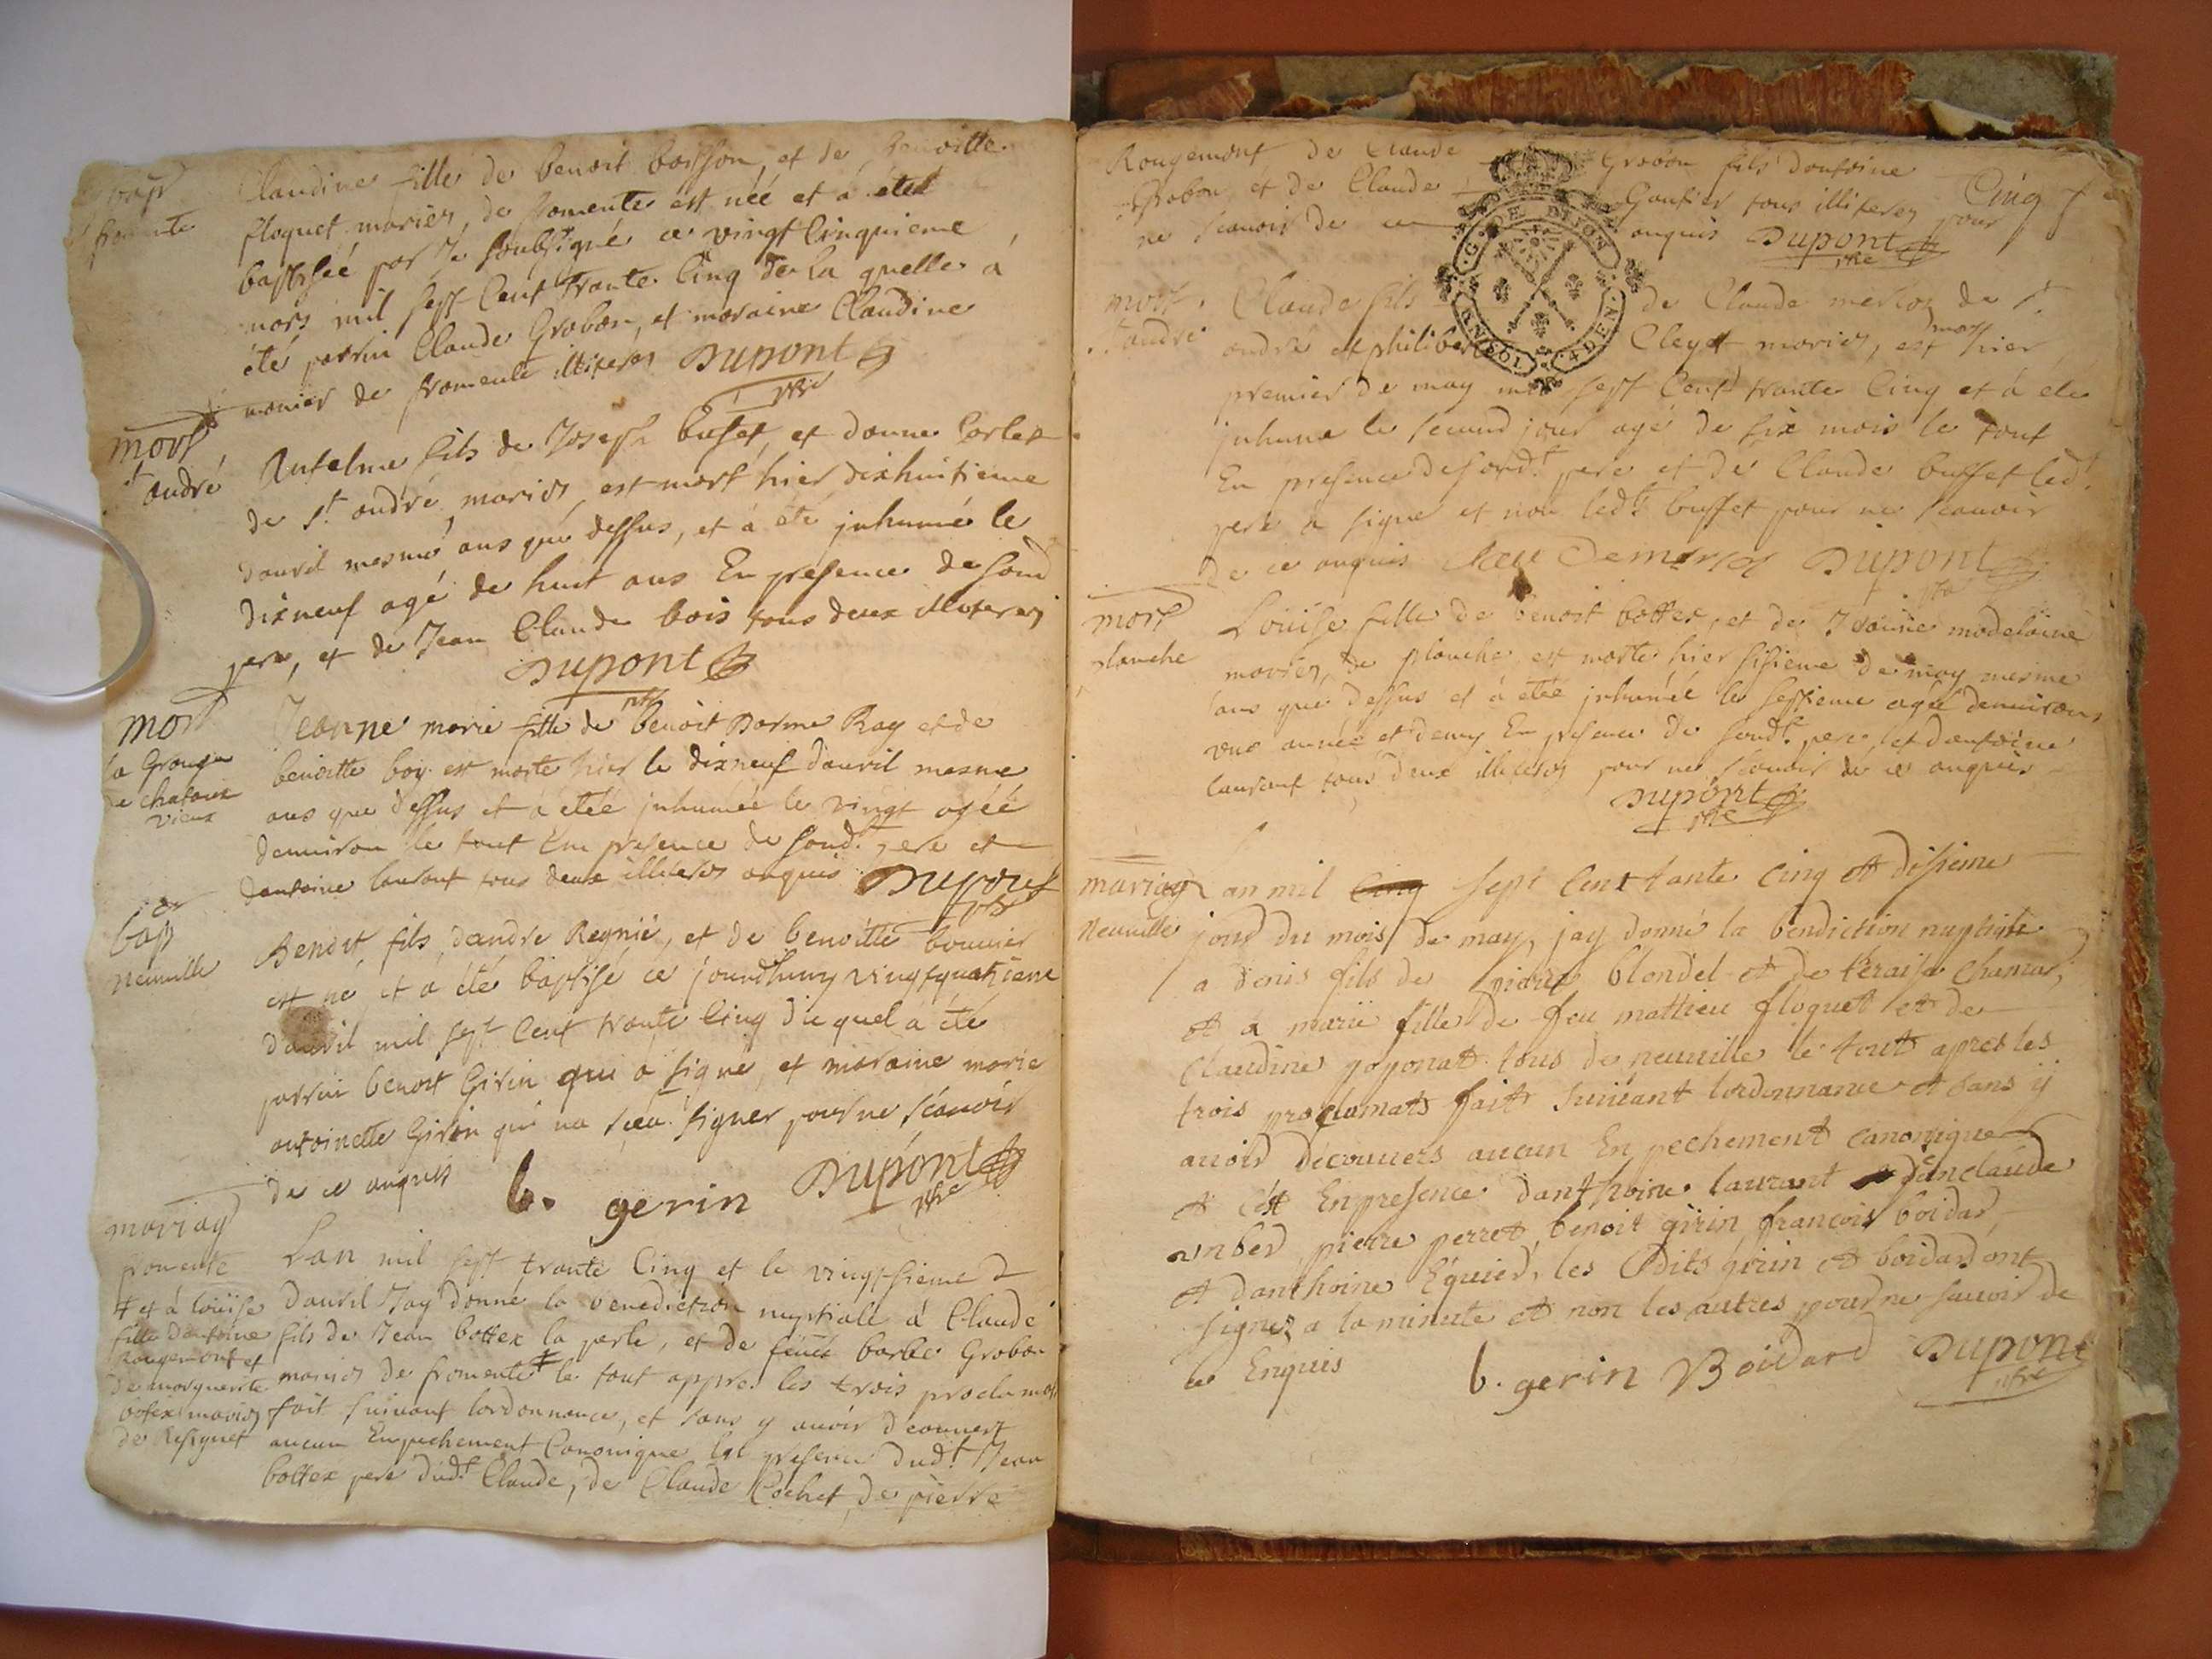 bap
fromente
Claudine fille de benoit boisson, et de benoitte
floquet mariés, de fromente est néé et à eteé
baptiséé par Je soubsigné ce vingt Cinquieme
mars mil sept Cent trante Cinq de la quelle à
été parrin Claude Grobon, et maraine Claudine
monier de fromente illiterés Dupont
ptre
mort
st andré
Antelme fils de Joseph bufet, et
de st andré mariés, est mort hier dixhuitieme
dauril mesme ans que dessus, et à été jnhumé le
dixneuf agé de huit ans En presence de sond
pere, et de Jean Claude bois tous deux illiterés
Dupont
ptre
mort
la Grange
de chatoux
vieux
Jeanne marie fille de benoit Ray et de
benoitte boy est morte hier le dixneuf dauril mesme
ans que dessus et à etéé jnhuméé le vingt agéé
denuiron le tout En presence de sondt pere et
dantoine laurant tous deux illiterés anquis Dupont
ptre
bap
Neuuille
Benoit fils dandré Regnié, et de benoitte bouuier
est né et a été baptisé ce jourdhuy vingtquatrieme
dauril mil sept Cent trante Cinq du quel a été
parrin benoit Girin qui a signé, et maraine marie
antoinette Girin qui na sceu signer pour ne scauoir
de ce anquis b. gerin Dupont
ptre
mariag
fromente
Lan mil sept trante Cinq et le vingtsieme
dauril Jay donné la benediction nuptiale à Claude
fils de Jean bottex la perle, et de feue barbe Grobon
mariés de fromente le tout appres les trois proclamas
fait suiuant lordonnance, et sans y auoir decouuert
aucun Empechement Canonique En presence dudt Jean
bottex pere dudt Claude, de Claude Cochet, de pierre
et à loüise
fille dantoine
Rougemont et
de marguerite
botex mariés
de
Rougemont de Claude Grobon fils dantoine
Grobon et de Claude Gautier tous illiterés pour
ne scauoir de ce anquis Dupont
ptre
Cinq
mort
st andré
Claude fils de Claude merloz de st
andré et philiberte Cleyet mariés, est mort hier
premier de may mil sept Cent trante Cinq et à ete
jnhumé le second jour agé de six mois le tout
En presence de sondt pere et de Claude buffet ledt
pere a signé et non ledt buffet pour ne scauoir
de ce anquis Dupont
ptre
mort
planche
Loüise fille de benoit bottex, et de modelaine
mariés, de planche, est morte hier sisieme de may mesme
ans que dessus et à etéé jnhuméé le septieme agéé denuirons
une année et demy En presence de sondt pere, et dantoine
laurant tous deux illiterés pour ne scauoir de ce anquis
Dupont
ptre
mariag
Neuuille
Lan mil cinq sept Cent tante Cinq et disieme
jour du mois de may, jay donné la bendiction nuptiale
a denis fils de pierre blondel et de téraise Chanar,
et a marie fille de feu mathieu floquet et de
Claudine goyonat tous de neuuille le tout apres les
trois proclamats fait suiuant lordonnance et sans ij
auoir decouuers aucun En pechement canonique
et cet En presence danthoine laurant Jean claude
unber pierre perret, benoit girin francois boidar,
et danthoine Equier, les Cdits girin et boidar ont
signez a la minute et non les autres pour ne sauoir de
ce Enquis b. gerin Boidard Dupont
ptre
G. DE DIJON